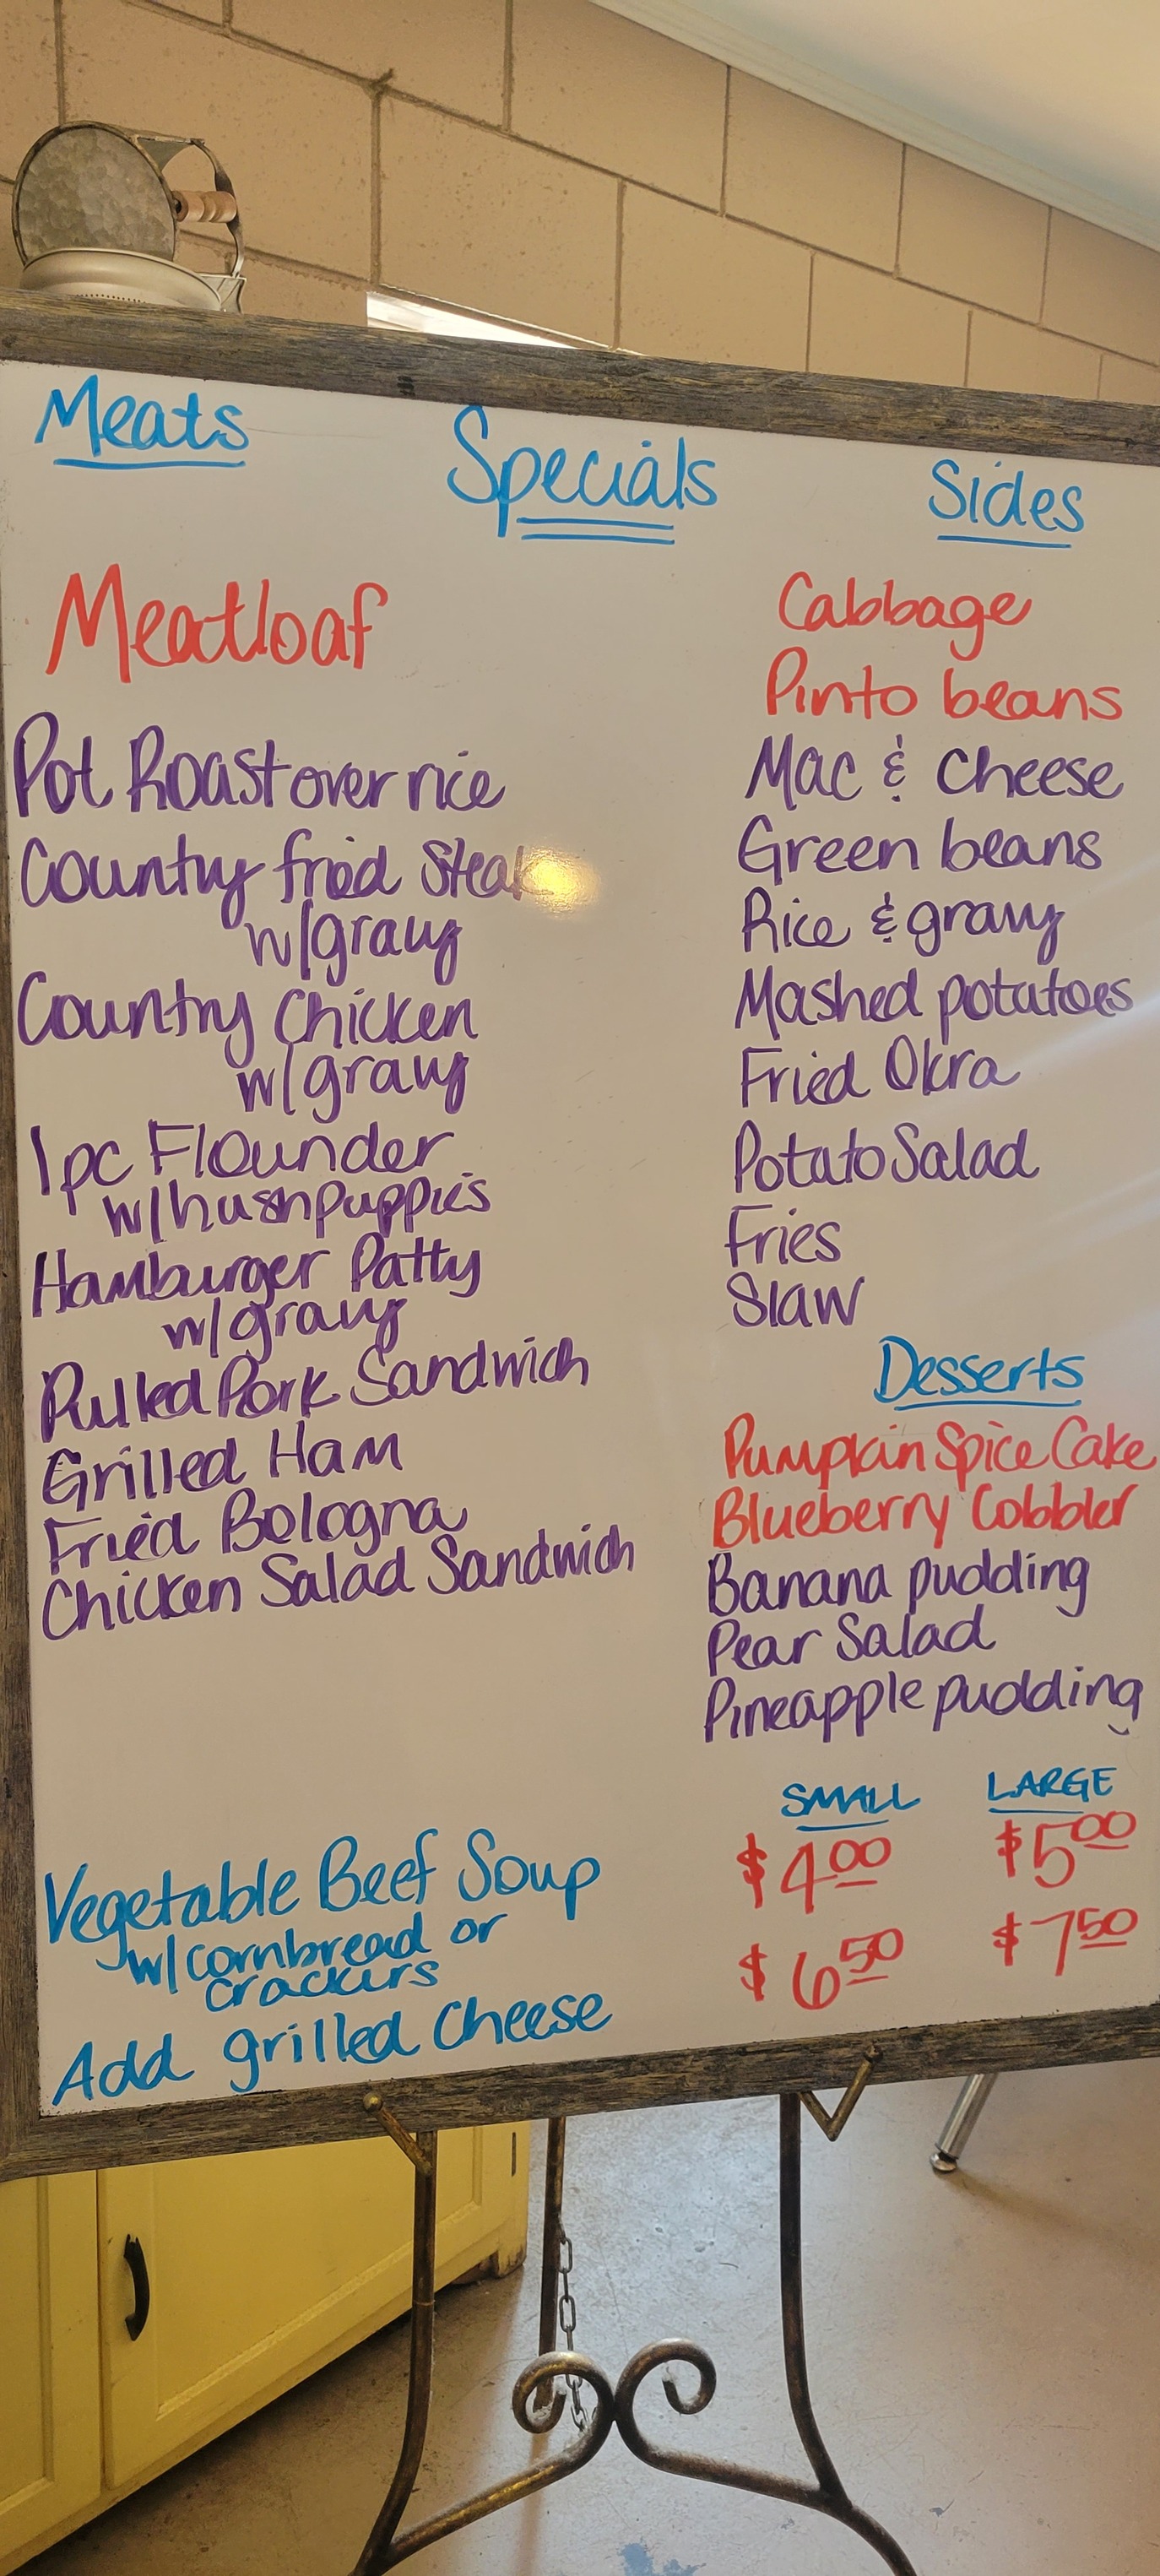 Meats
Specials
Sides
Meatloaf
Pot Roast over rice
Country fried Steak
w/gravy
Country Chicken
w/gravy
1pc Flounder
w/hushpuppies
Hamburger Patty
w/gravy
Pulled Pork Sandwich
Grilled Ham
Fried Bologna
Chicken Salad Sandwich
Cabbage
Pinto beans
Mac & Cheese
Green beans
Rice & gravy
Mashed potatoes
Fried Okra
Potato Salad
Fries
Slaw
Desserts
Pumpkin Spice Cake
Blueberry Cobbler
Banana pudding
Pear Salad
Pineapple pudding
SMALL LARGE
Vegetable Beef Soup $4.00 $5.00
w/cornbread or
crackers
Add grilled cheese $6.50 $7.50